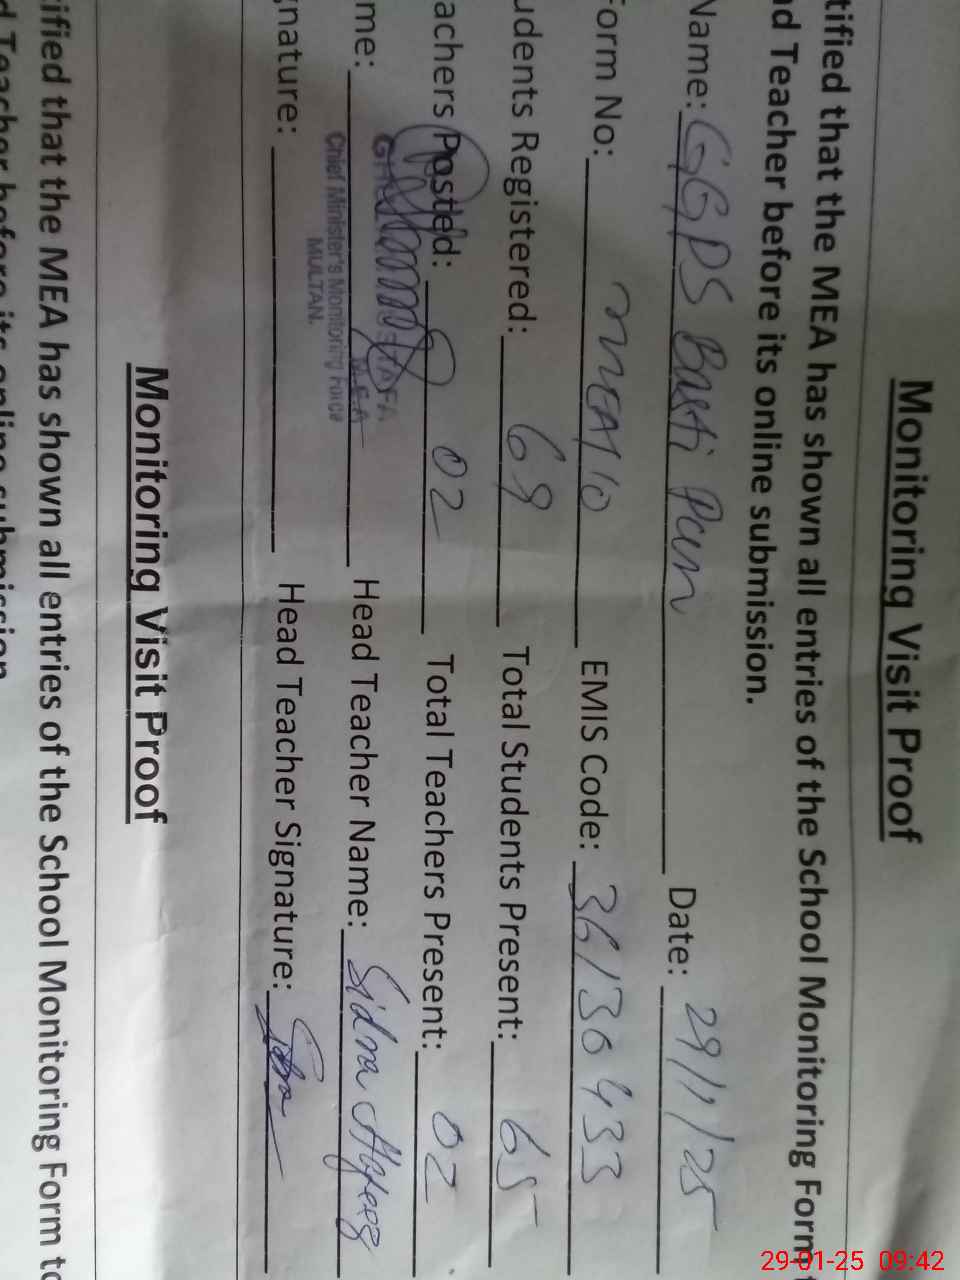 Monitoring Visit Proof
tified that the MEA has shown all entries of the School Monitoring Form
d Teacher before its online submission.
Name: GGPS Basti Pun Date: 29/1/25
Form No: MEA110 EMIS Code: 36130433
udents Registered: 69 Total Students Present: 65
achers Posted: 02 Total Teachers Present: 02
me: Head Teacher Name: Sidra Hafeez
M.E.A
Chief Minister's Monitoring Force
MULTAN.
gnature: Head Teacher Signature: Sidra
Monitoring Visit Proof
tified that the MEA has shown all entries of the School Monitoring Form to
d Teacher before its online submission
29-01-25 09:42